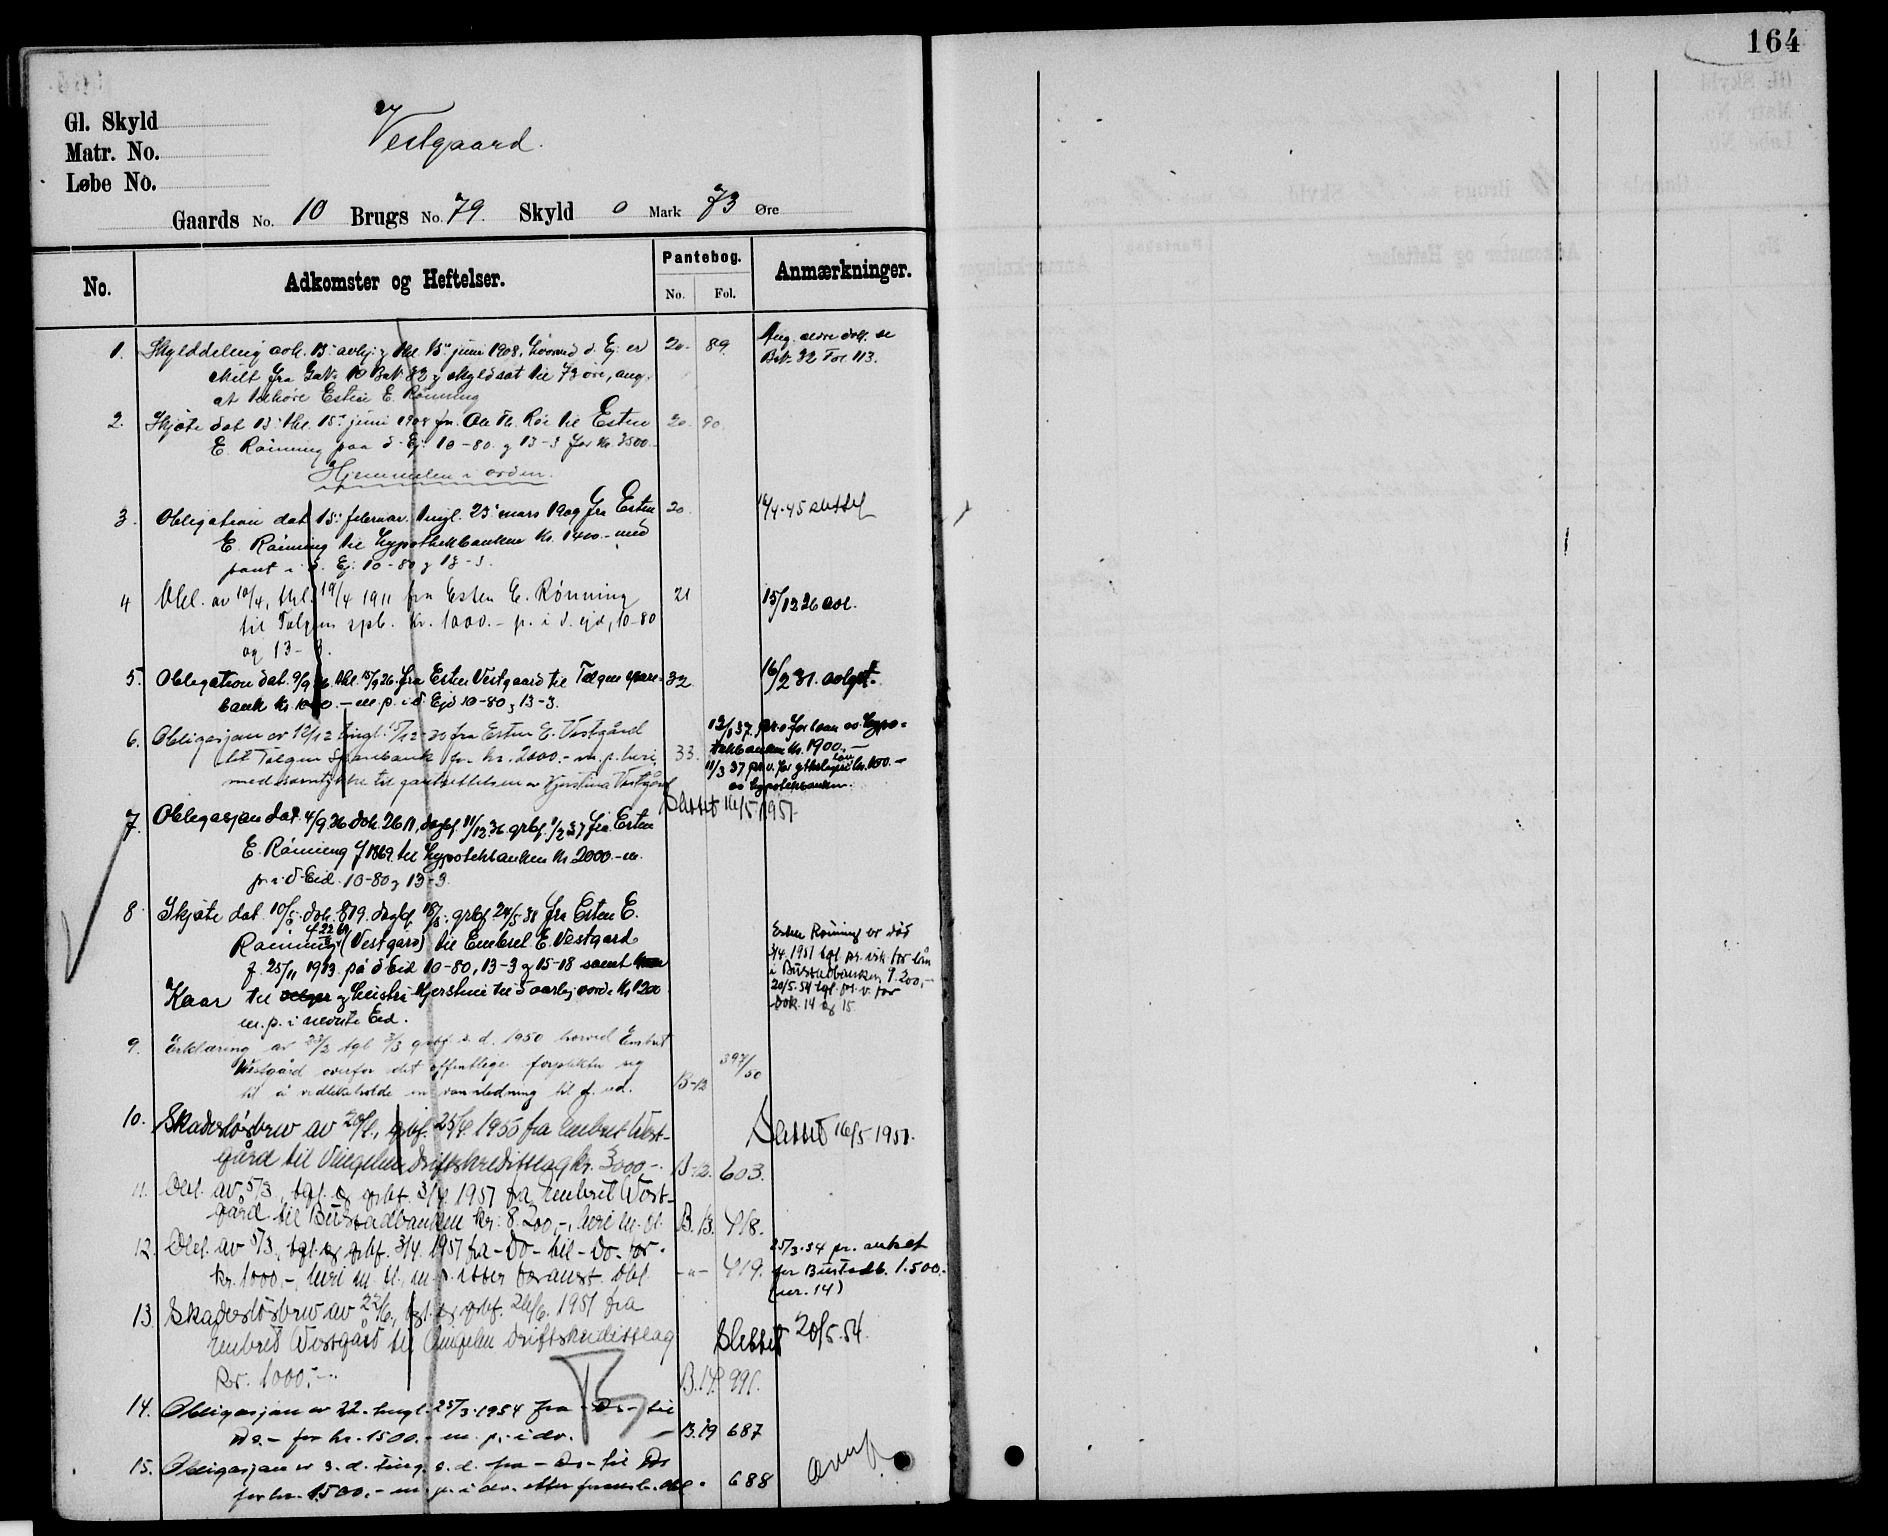 164
Gl. Skyld
Matr. No.
Løbe No.
Vestgaard.
Gaards No. 10 Brugs No. 79. Skyld 0 Mark 73 Øre
No. Adkomster og Heftelser. Pantebog. No. Fol. Anmærkninger.
1. Skylddeling avh. 13: avhj: g thl. 15: juni 1908, hvorved d. Ej: er 20. 89. Ang. ældre dok. se
skilt fra Gn: 10 Bn: 32 g skyldsat til 73 øre, ang. Bn: 32 Fol 113.
at tilhøre Esten E. Rønning
2. Skjøte dat 13: thl. 15: juni 1908 fra Ole Th. Røe til Esten 20. 90.
E. Rønning paa d. Ej: 10-80. g 13-3 for Kr. 3500.-
Hjemmelen i orden.
3. Obligation dat 15: februar. tingl. 23: mars 1909 fra Esten 20. 14/4-45 slettet
E. Rønning til hypothekbanken Kr. 1400.- med
pant i d. Ej: 10-80 g 13-3.
4 Obl. av 10/4, thl. 19/4 1911 fra Esten E. Rønning 21 15/12 26 avl.
til Tolgen spb. Kr. 1000.- p. i d. ejd, 10-80
og 13-3.
5. Obligation dat. 9/9 26. thl. 15/9 26. fra Esten Vestgaard til Tolgen spare- 32. 16/2 31. avlyst.
bank Kr. 1000.- m. p. i d Ejd 10-80 g 13-3.
6. Obligasjon av 12/12 tingl. 15/12-30 fra Esten E. Vestgård 12/1 37. pr. v. for laan av Hypo-
til Tolgen Sparebank for kr. 2000.- m. p. heri, 33. tekbanken Kr. 1900.-
med samtykke til pantsettelsen av Kjerstina Vestgård 11/3 37 pr. v. for lån kr. 100.-
av hypotekbanken.
Slettet 16/5 1951.
7. Obligasjon dat. 4/9 36 dok. 2611, dagbf. 11/12 36 grbf. 1/2 37 fra Esten
E. Rønning f 1869 til hypotekbanken Kr 2000.- m.
p. i d Eid. 10-80 g 13-3.
8 Skjøte dat. 10/5. dok. 879. dagbf. 18/5, grbf. 24/5 38 fra Esten E.
Rønning (Vestgard) til Embret E. Vestgard
f. 25/11 1913. på d Eid 10-80, 13-3 g 15-18 samt
Kaar til selger g hustru Kjerstine til 5 aarlig verdi Kr 1200
m. p. i nevnte Eid.
Esten Rønning er død
3/4. 1951 tgl. pr. vik. for lån
i Bustadbanken 9.200,-
20/5.54 tgl. pr. v. for
Dok. 14 og 15.
9. Erklæring av 23/2 tgl 3/3 grbf s. d. 1950 hvorved Embret 397/50
Vestgård overfor det offentlige forplikter seg
til å vedlikeholde en vannledning til f. ed. B-12
10. Skadesløsbrev av 20/4, grbf. 25/4. 1950 fra Embret Vest- Slettet 16/5 1951.
gård til Vingelen Driftskredittlag kr. 3000,-. B-12. 603.
11. Obl. av 5/3, tgl. og grbf. 3/4. 1951 fra Embret Vest-
gård til Bustadbanken kr. 8.200,-, heri m. fl. B. 13. 418.
12. Obl. av 5/3, tgl. og grbf. 3/4. 1951 fra -Do- til -Do- for 25/3-54 pr. anket
kr. 1000,-, heri m. fl., m. p. etter foranst. Obl. -"- 419. for Bustadb. 1.500.-
(nr. 14)
13. Skadesløsbrev av 22/6, tgl. og grbf. 26/6. 1951 fra
Embret Vestgård til Vingelen Driftskredittlag Slettet 20/5.54.
Kr. 1000,-. B. 14. 991.
14. Obligasjon av 22. tingl. 25/3-1954 fra -Do- til
Do.- for kr. 1500.- m. p. i do. B. 19 687
15. Obligasjon av s. d. ting. s. d. fra -Do- til Do
for kr. 1.500.- m. p. i do. etter foranst. obl. 688
Overf.